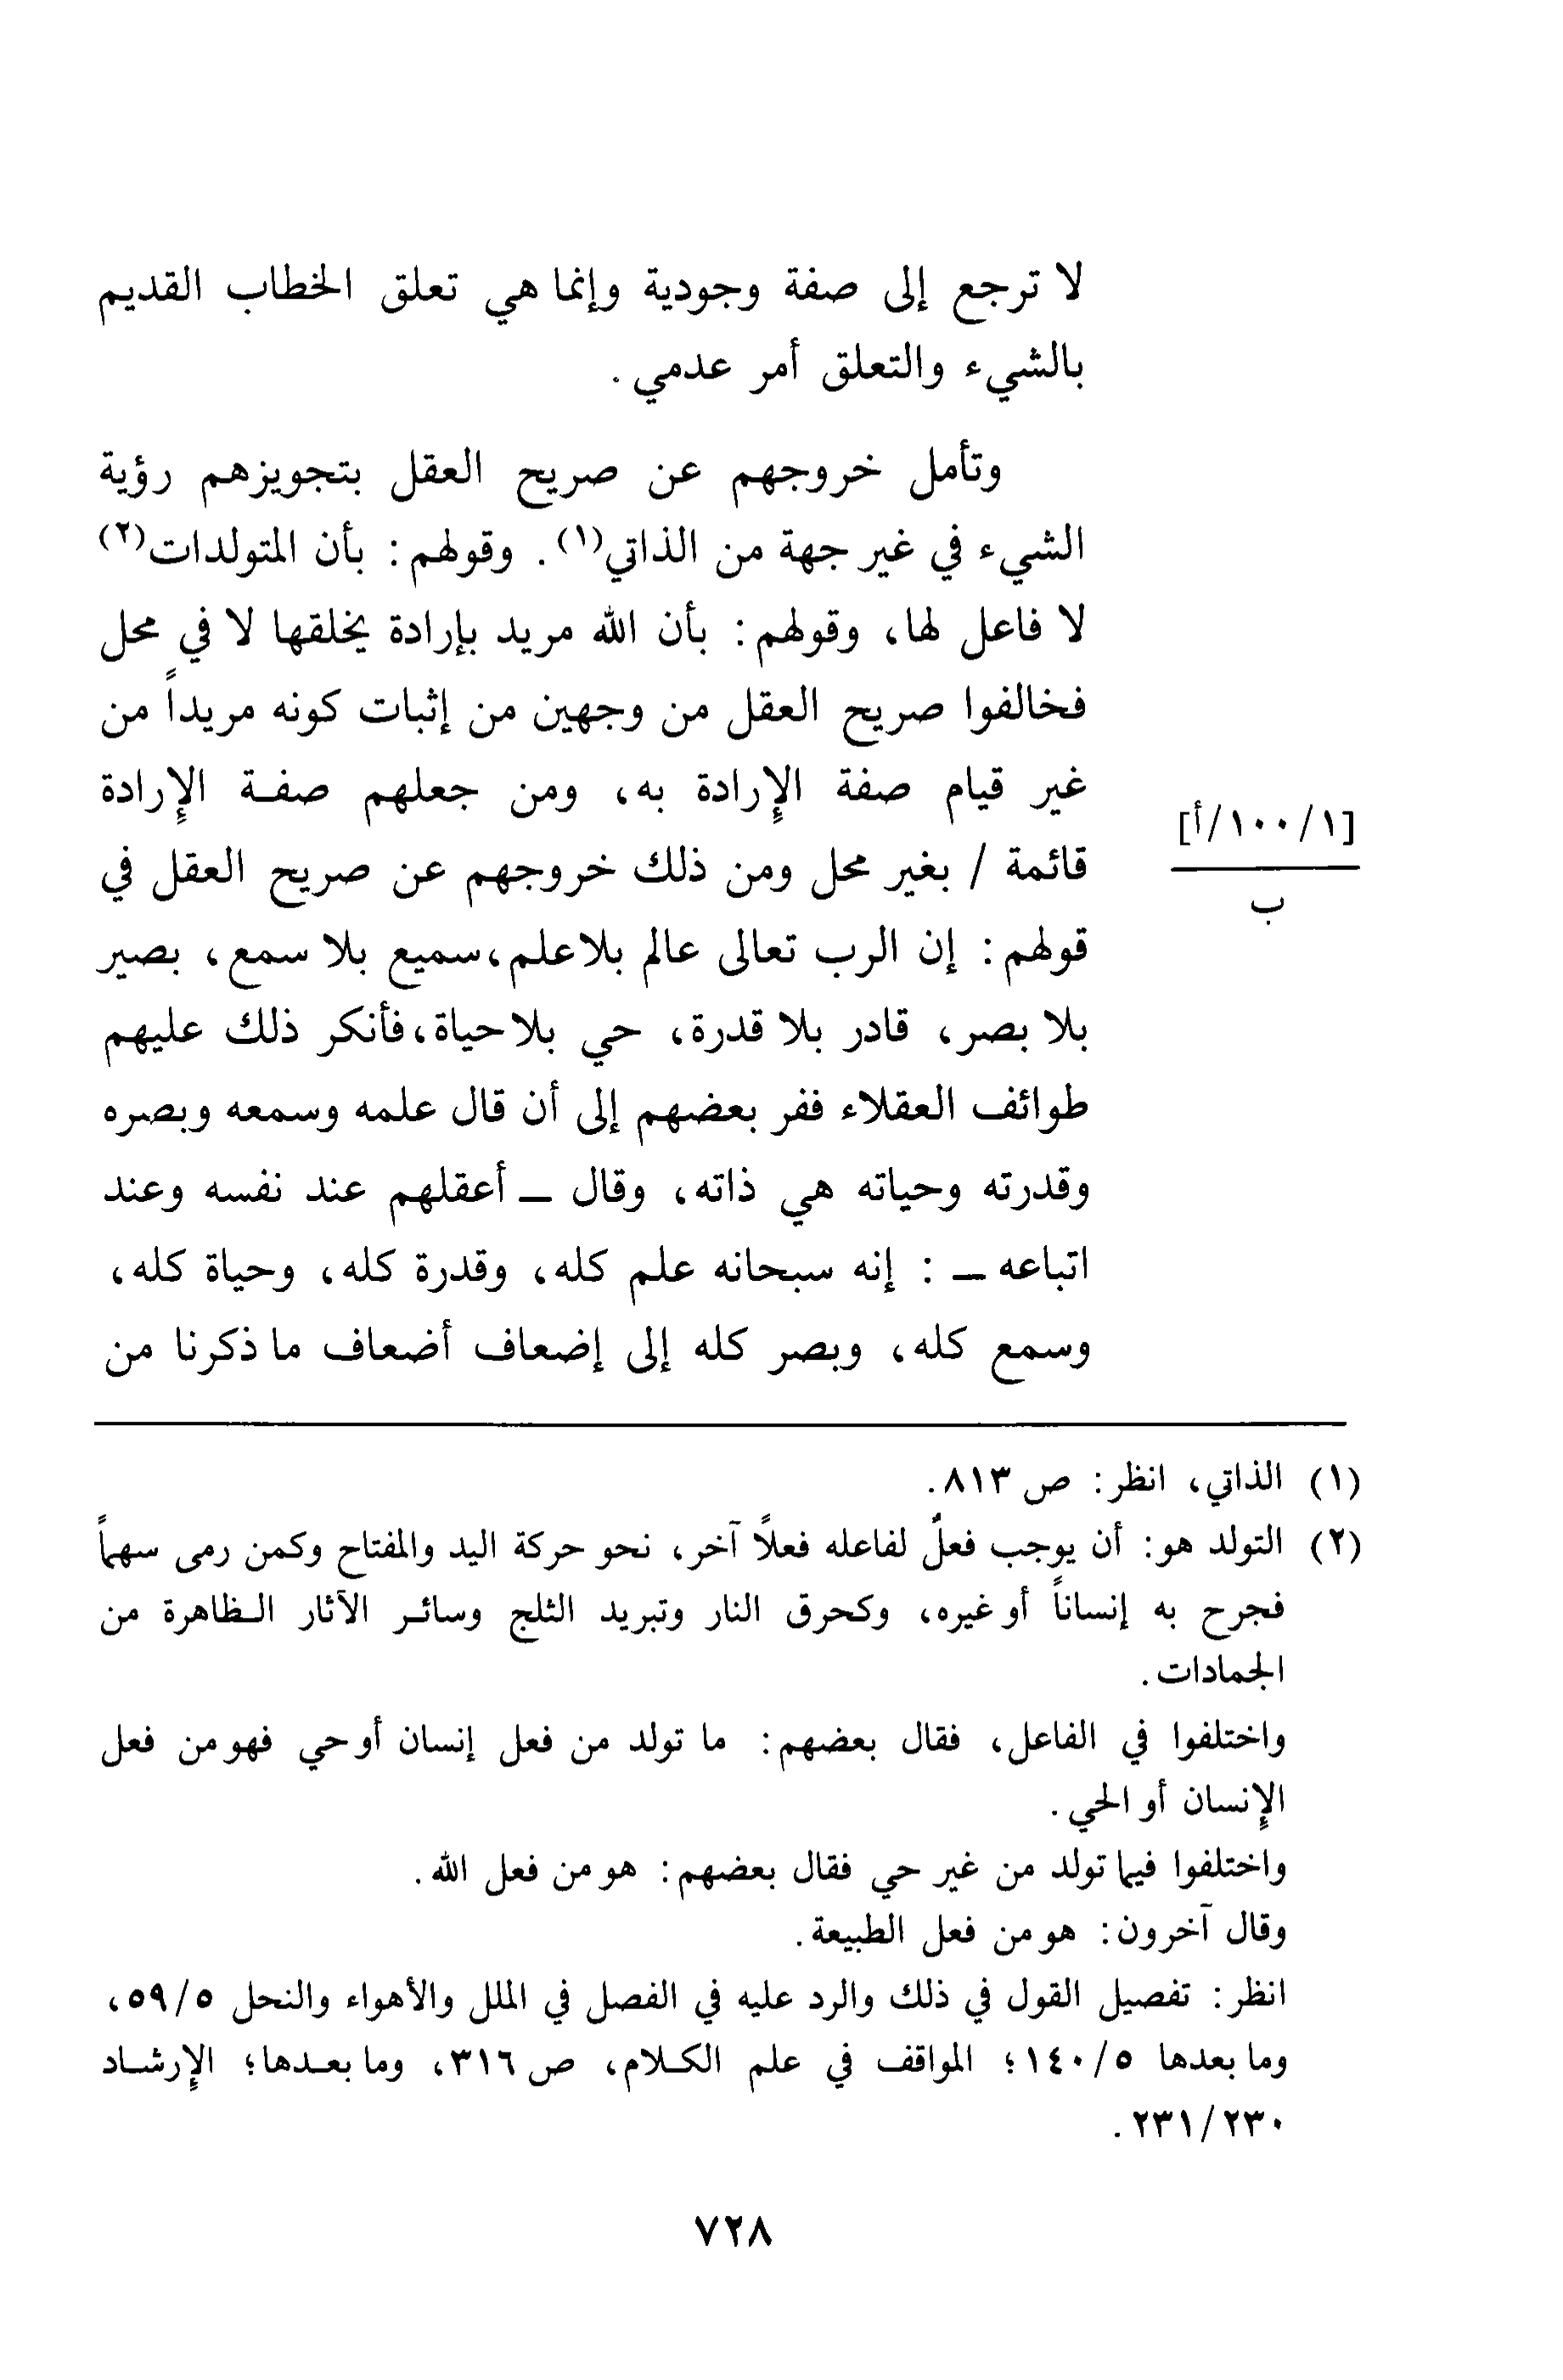 لا ترجع إلى صفة وجودية وإنما هي تعلق الخطاب القديم
بالشيء والتعلق أمر عدمي .
وتأمل خروجهم عن صريح العقل بتجويزهم رؤية
الشيء في غير جهة من الذاتي(١) . وقولهم : بأن المتولدات(٢)
لا فاعل لها، وقولهم : بأن الله مريد بإرادة يخلقها لا في محل
فخالفوا صريح العقل من وجهين من إثبات كونه مريداً من
غير قيام صفة الإرادة به، ومن جعلهم صفة الإرادة
[١٠٠/١/أ]
قائمة / بغير محل ومن ذلك خروجهم عن صريح العقل في
ب
قولهم : إن الرب تعالى عالم بلا علم، سميع بلا سمع، بصير
بلا بصر، قادر بلا قدرة، حي بلا حياة، فأنكر ذلك عليهم
طوائف العقلاء ففر بعضهم إلى أن قال علمه وسمعه وبصره
وقدرته وحياته هي ذاته، وقال ـ أعقلهم عند نفسه وعند
اتباعه ـ : إنه سبحانه علم كله، وقدرة كله، وحياة كله،
وسمع كله، وبصر كله إلى إضعاف أضعاف ما ذكرنا من
(١) الذاتي، انظر: ص ٨١٣.
(٢) التولد هو: أن يوجب فعلٌ لفاعله فعلاً آخر، نحو حركة اليد والمفتاح وكمن رمى سهماً
فجرح به إنساناً أو غيره، وكحرق النار وتبريد الثلج وسائر الآثار الظاهرة من
الجمادات .
واختلفوا في الفاعل، فقال بعضهم: ما تولد من فعل إنسان أو حي فهو من فعل
الإنسان أو الحي .
واختلفوا فيما تولد من غير حي فقال بعضهم: هو من فعل الله .
وقال آخرون: هو من فعل الطبيعة .
انظر: تفصيل القول في ذلك والرد عليه في الفصل في الملل والأهواء والنحل ٥٩/٥،
وما بعدها ١٤٠/٥؛ المواقف في علم الكلام، ص ٣١٦، وما بعدها؛ الإرشاد
٢٣١/٢٣٠ .
٧٢٨